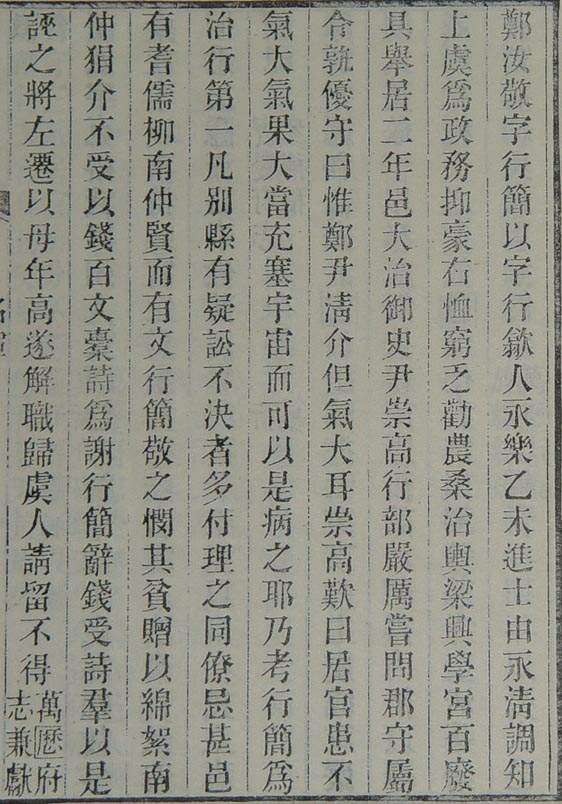 鄭汝敬字行簡以字行歙人永樂乙未進士由永淸調知
上虞爲政務抑豪右恤窮乏勸農桑治輿梁興學宮百廢
具舉居二年邑大治御史尹崇高行部嚴厲嘗問郡守屬
令孰優守曰惟鄭尹淸介但氣大耳崇高歎曰居官患不
氣大氣果大當充塞宇宙而可以是病之耶乃考行簡爲
治行第一凡別縣有疑訟不決者多付理之同僚忌甚邑
有耆儒柳南仲賢而有文行簡敬之憫其貧贈以綿絮南
仲狷介不受以錢百文橐詩爲謝行簡辭錢受詩羣以是
誣之將左遷以母年高遂解職歸虞人請留不得
萬歷府
志兼獻